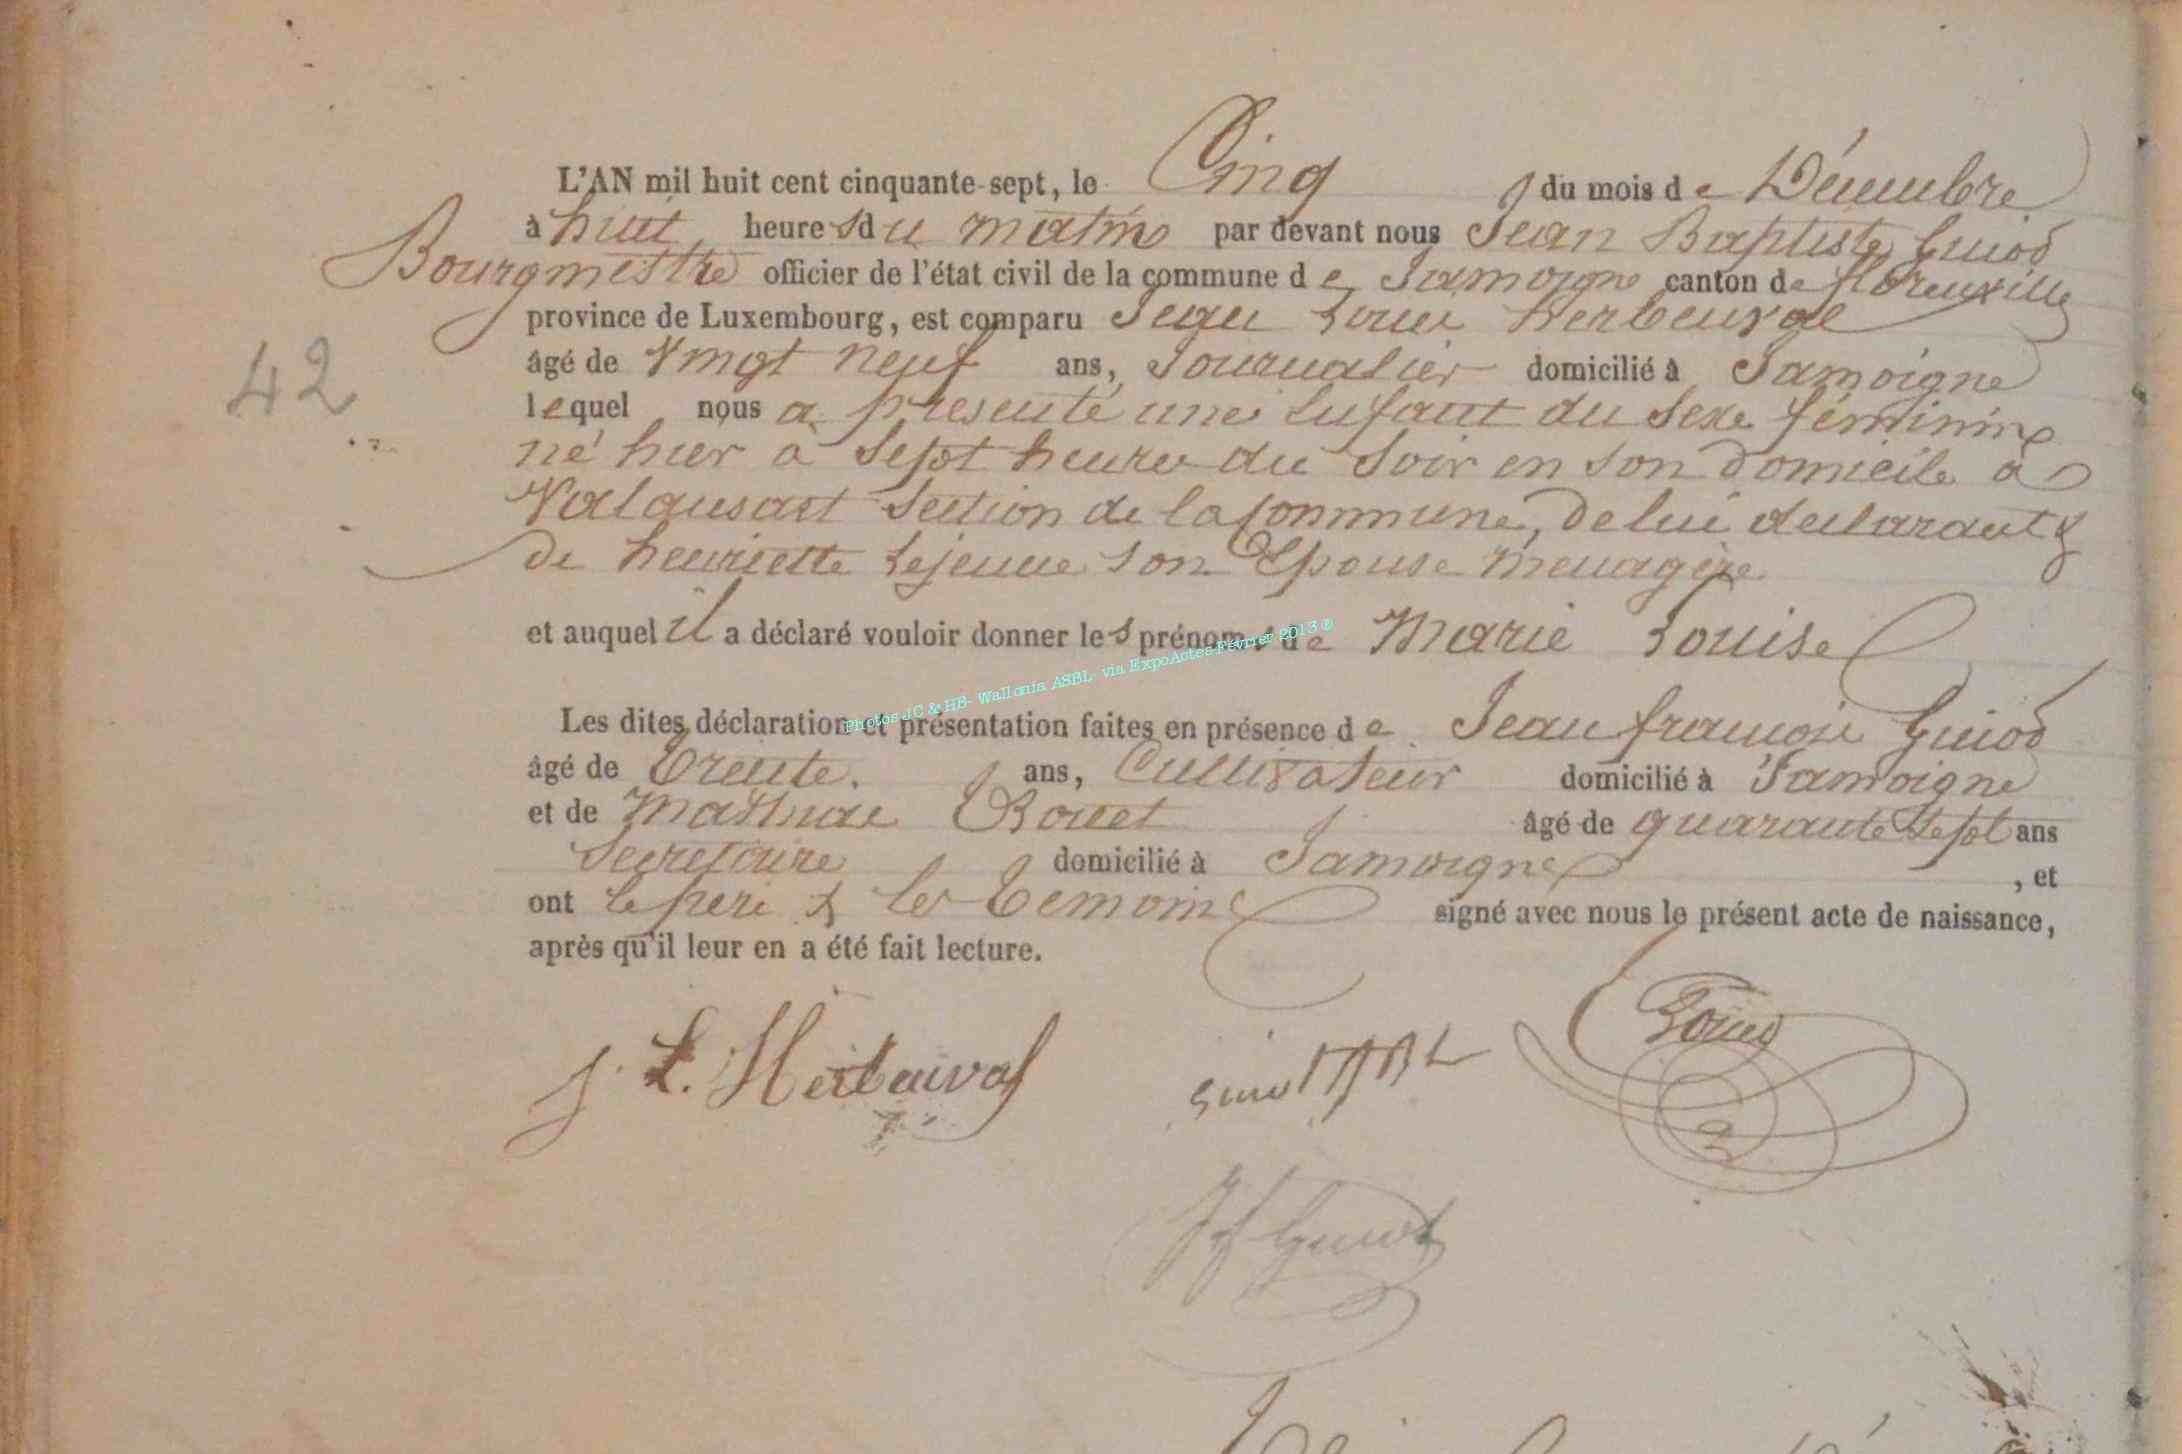 L'AN mil huit cent cinquante-sept, le Cinq du mois de Décembre
à huit heures du matin par devant nous Jean Baptiste Guiot
Bourgmestre officier de l'état civil de la commune de Jamoigne canton de florenville
province de Luxembourg, est comparu Jean Louis Herbeuval
âgé de Vingt neuf ans, Journalier domicilié à Jamoigne
42
lequel nous a présenté une Enfant du Sexe féminin
né hier à Sept heures du Soir en son domicile à
Valansart Section de la Commune, de lui déclarant &
de henriette Lejeune son Epouse menagère
et auquel il a déclaré vouloir donner les prénoms de Marie Louise
Photos JC & HB- Wallonia ASBL via ExpoActes Février 2013 ®
Les dites déclaration et présentation faites en présence de Jean françois Guiot
âgé de Trente. ans, Cultivateur domicilié à Jamoigne
et de Mathieu Rouet âgé de quarante Sept ans
Secretaire domicilié à Jamoigne , et
ont le père & les Témoins signé avec nous le présent acte de naissance,
après qu'il leur en a été fait lecture.
J. L. Herbeuval
Guiot
JF Guiot